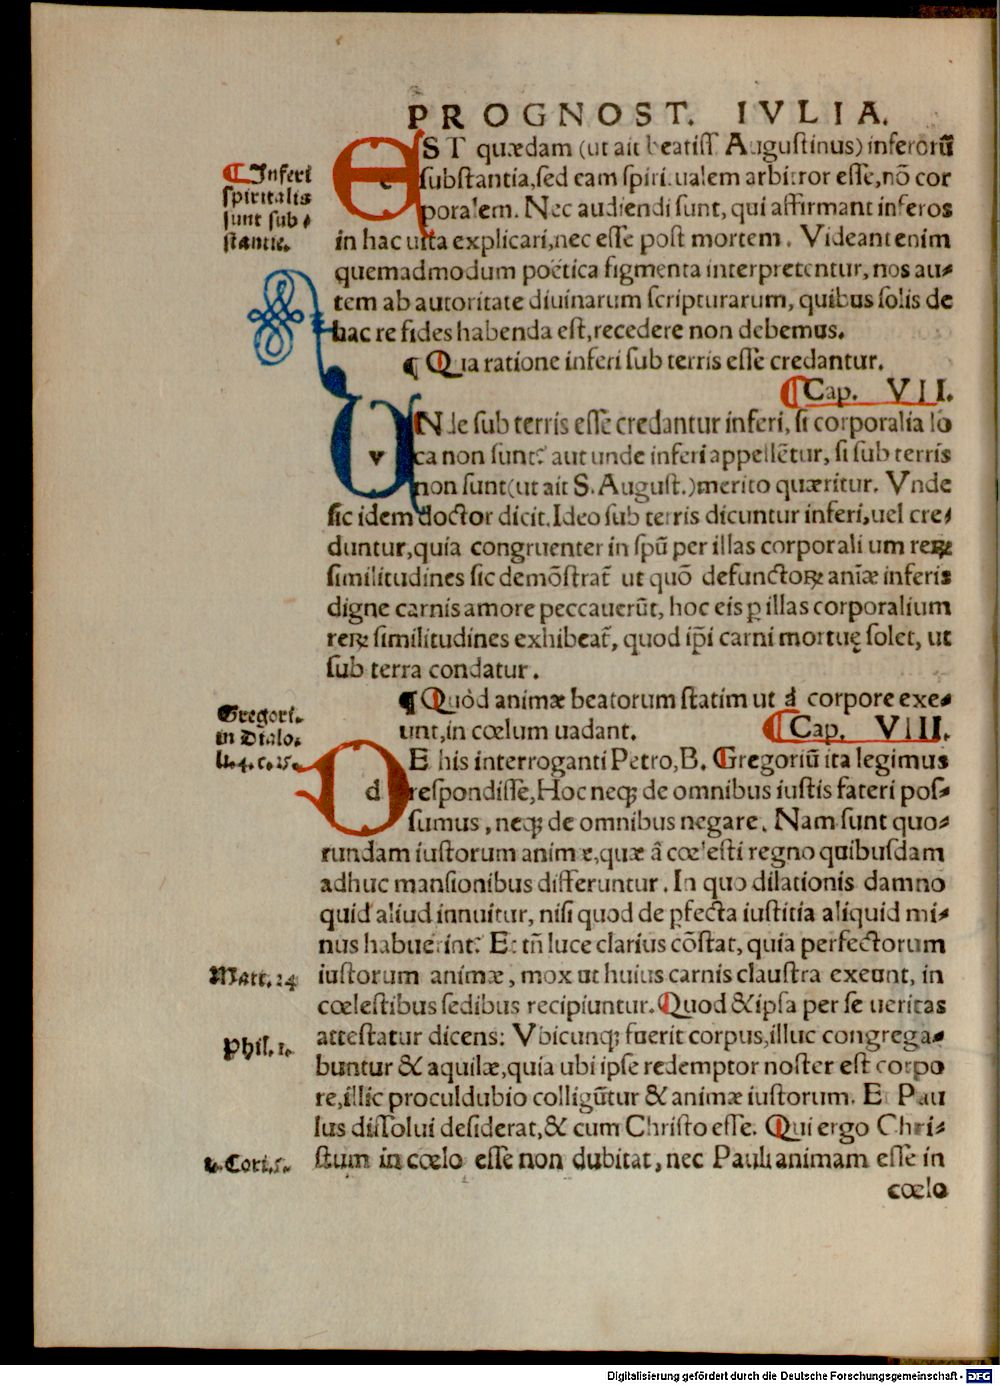 PROGNOST. IVLIA.
¶ Inferi
spiritalis
sunt sub⸗
stantie.
EST quædam (ut ait beatiss. Augustinus) inferorũ
substantia, sed eam spiritualem arbitror esse, nõ cor
poralem. Nec audiendi sunt, qui affirmant inferos
in hac uita explicari, nec esse post mortem. Videant enim
quemadmodum poëtica figmenta interpretentur, nos au⸗
tem ab autoritate diuinarum scripturarum, quibus solis de
hac re fides habenda est, recedere non debemus.
¶ Qua ratione inferi sub terris esse credantur.
¶ Cap. VII.
VNde sub terris esse credantur inferi, si corporalia lo
ca non sunt? aut unde inferi appellẽtur, si sub terris
non sunt (ut ait S. August.) merito quæritur. Vnde
sic idem doctor dicit. Ideo sub terris dicuntur inferi, uel cre⸗
duntur, quia congruenter in spũ per illas corporalium reꝝ
similitudines sic demõstrat̃ ut quõ defunctoꝝ anĩæ inferis
digne carnis amore peccauerũt, hoc eis ꝑ illas corporalium
reꝝ similitudines exhibeat̃, quod ip̃i carni mortuę solet, ut
sub terra condatur.
¶ Quòd animæ beatorum statim ut á corpore exe⸗
unt, in cœlum uadant. ¶ Cap. VIII.
Gregori.
in Dialo.
li. 4. c. 25.
DE his interroganti Petro, B. Gregoriũ ita legimus
respondisse, Hoc neqꝫ de omnibus iustis fateri pos⸗
sumus, neqꝫ de omnibus negare. Nam sunt quo⸗
rundam iustorum animæ, quæ ã cœlesti regno quibusdam
adhuc mansionibus differuntur. In quo dilationis damno
quid aliud innuitur, nisi quod de ꝑfecta iustitia aliquid mi⸗
nus habuerint? Et tñ luce clarius cõstat, quia perfectorum
Matt. 24
iustorum animæ, mox ut huius carnis claustra exeunt, in
cœlestibus sedibus recipiuntur. Quod & ipsa per se ueritas
attestatur dicens: Vbicunqꝫ fuerit corpus, illuc congrega⸗
Phil. 1.
buntur & aquilæ, quia ubi ipse redemptor noster est corpo
re, illic proculdubio colligũtur & animæ iustorum. Et Pau
lus dissolui desiderat, & cum Christo esse. Qui ergo Chri⸗
2. Cori. 5.
stum in cœlo esse non dubitat, nec Pauli animam esse in
cœlo
Digitalisierung gefördert durch die Deutsche Forschungsgemeinschaft - DFG